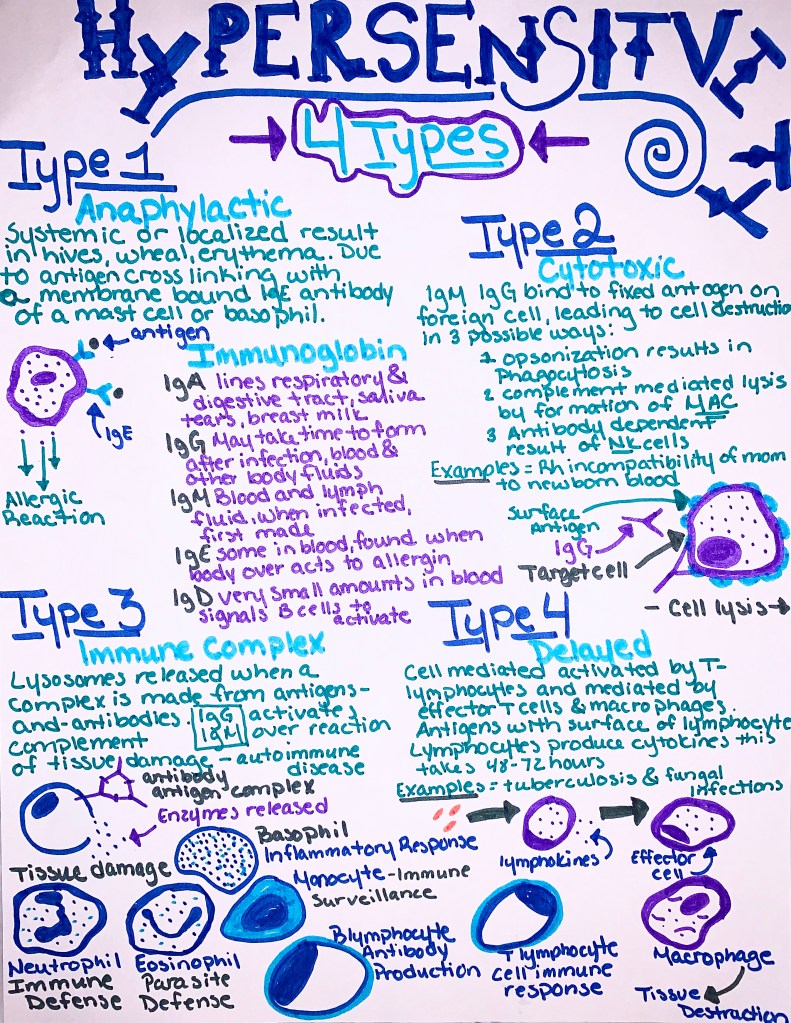 HYPERSENSITVITY
4 Types
Type 1
Anaphylactic
Systemic or localized result
in hives, wheal, erythema. Due
to antigen cross linking with
a membrane bound IgE antibody
of a mast cell or basophil.
antigen
IgE
Allergic
Reaction
Immunoglobin
IgA lines respiratory &
digestive tract, saliva
tears, breast milk
IgG May take time to form
after infection, blood &
other body fluids
IgM Blood and lymph
fluid, when infected,
first made
IgE some in blood, found when
body over acts to allergin
IgD very small amounts in blood
signals B cells to
activate
Type 2
Cytotoxic
IgM IgG bind to fixed antogen on
foreign cell, leading to cell destructio
in 3 possible ways:
1 opsonization results in
Phagocytosis
2 complement mediated lysis
by formation of MAC
3 Antibody dependent
result of NK cells
Examples = Rh incompatibility of mom
to newborn blood
Surface
Antigen
IgG
Target cell
- Cell lysis →
Type 3
Immune Complex
Lysosomes released when a
complex is made from antigens-
and-antibodies. IgG activates
complement IgM over reaction
of tissue damage - autoimmune
disease
antibody
antigen complex
Enzymes released
Tissue damage
Type 4
Delayed
Cell mediated activated by T-
lymphocytes and mediated by
effector T cells & macrophages.
Antigens with surface of lymphocyte
Lymphocytes produce cytokines this
takes 48-72 hours
Examples = tuberculosis & fungal
infections
lymphokines
Effector
cell
Macrophage
Tissue
Destraction
Basophil
Inflammatory Response
Monocyte-Immune
Surveillance
Neutrophil
Immune
Defense
Eosinophil
Parasite
Defense
Blymphocyte
Antibody
Production
T lymphocyte
cell immune
response